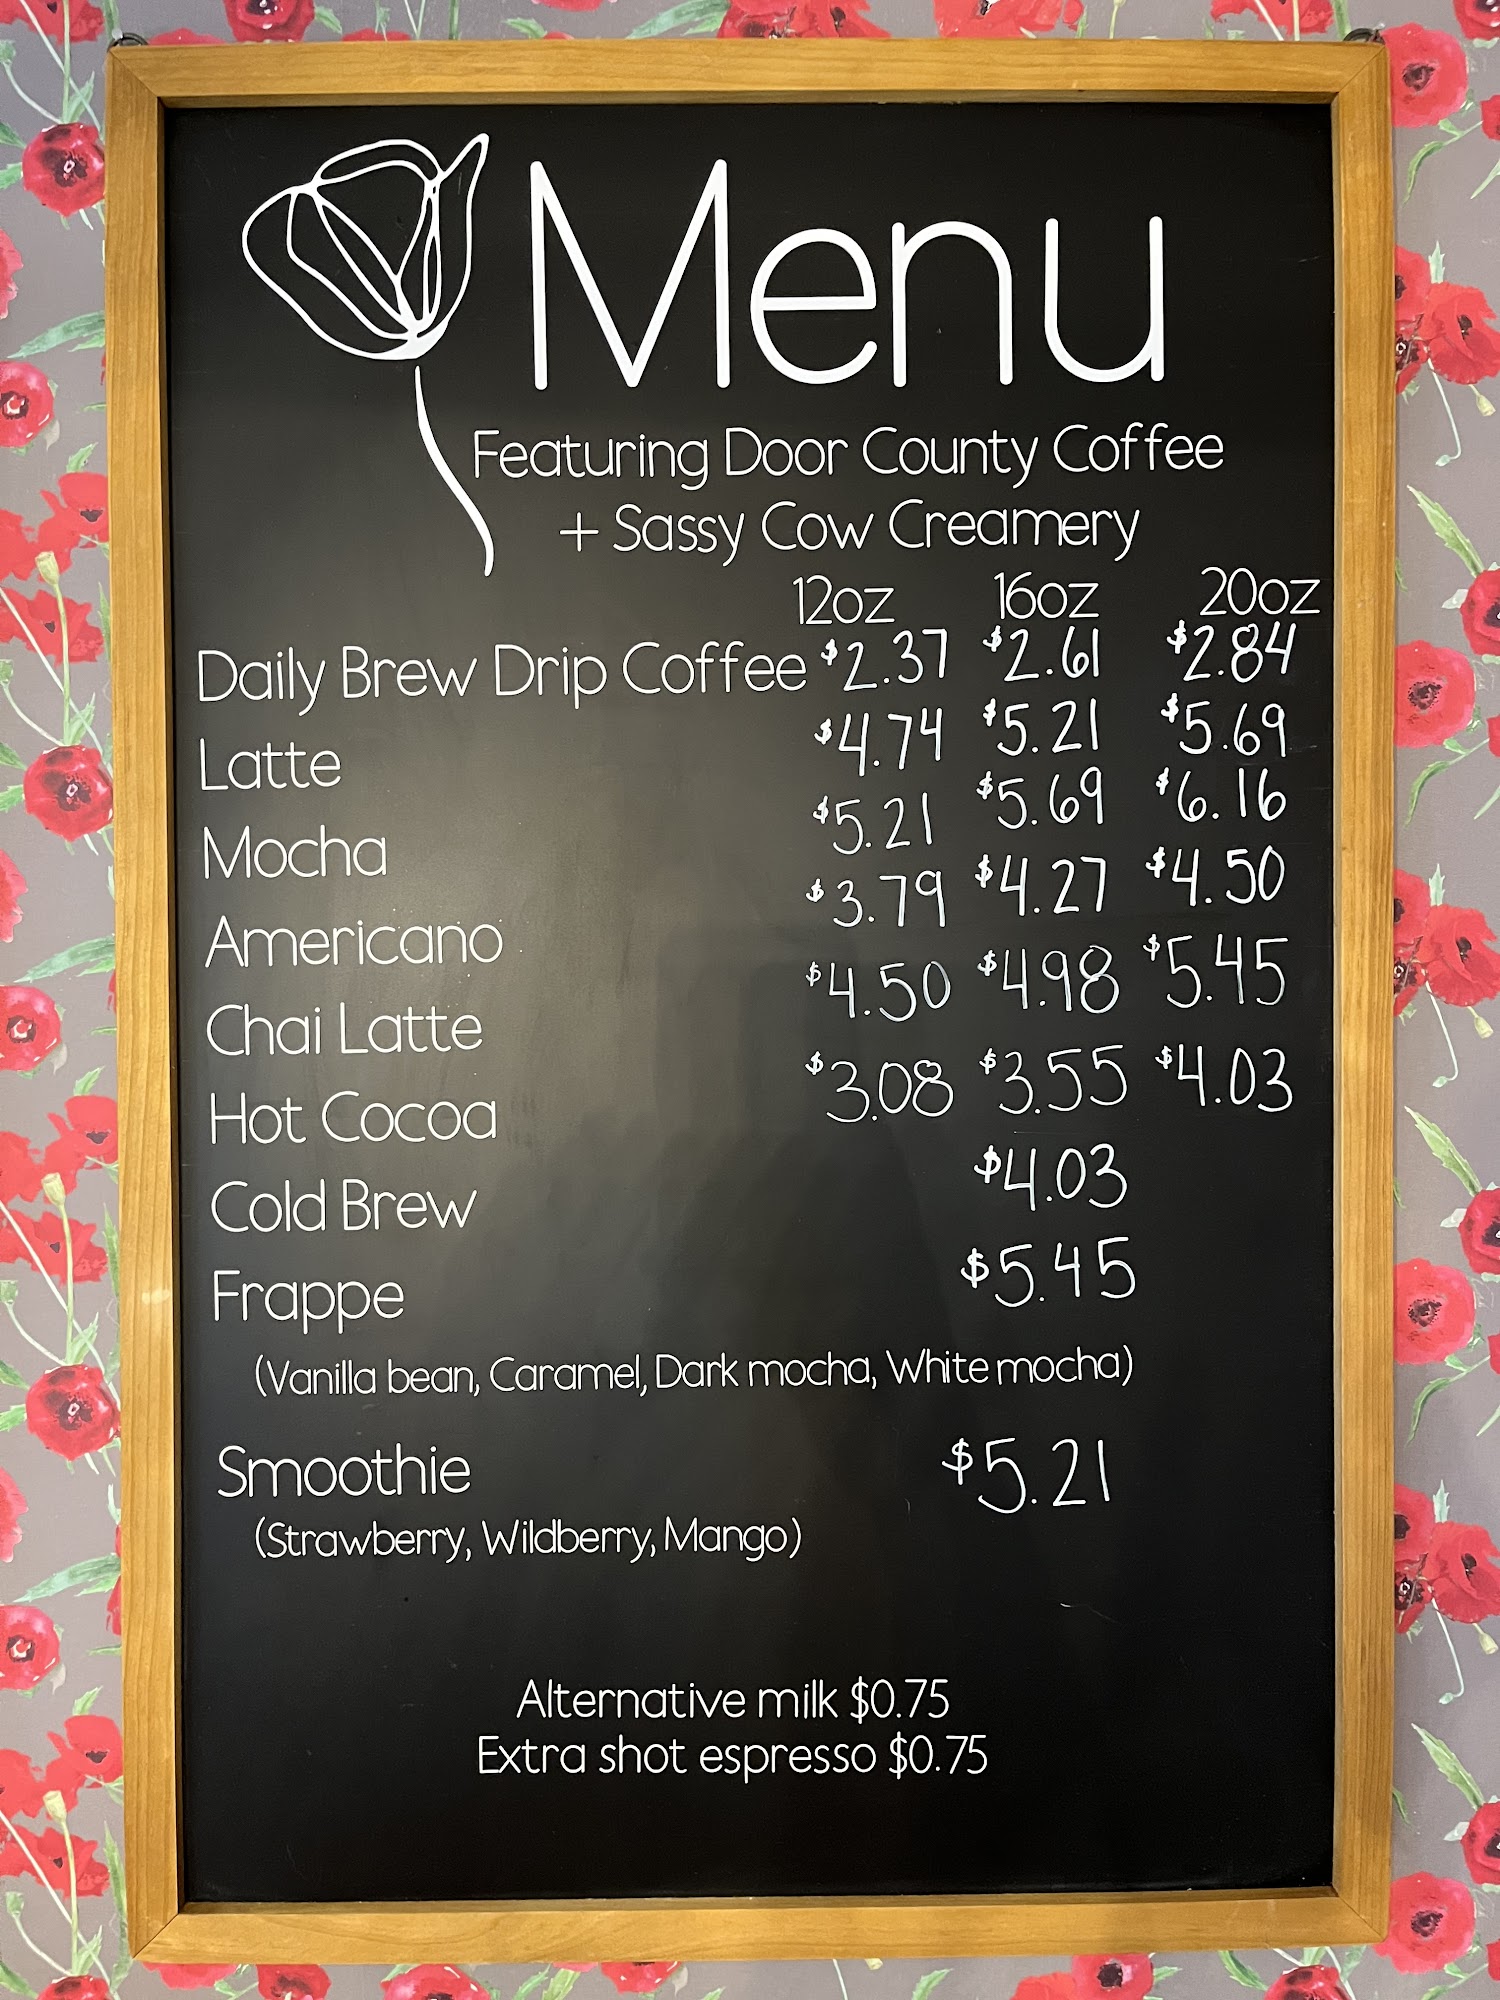 Menu
Featuring Door County Coffee
+ Sassy Cow Creamery
12oz 16oz 20oz
Daily Brew Drip Coffee $2.37 $2.61 $2.84
Latte $4.74 $5.21 $5.69
Mocha $5.21 $5.69 $6.16
Americano $3.79 $4.27 $4.50
Chai Latte $4.50 $4.98 $5.45
Hot Cocoa $3.08 $3.55 $4.03
Cold Brew $4.03
Frappe $5.45
(Vanilla bean, Caramel, Dark mocha, White mocha)
Smoothie $5.21
(Strawberry, Wildberry, Mango)
Alternative milk $0.75
Extra shot espresso $0.75